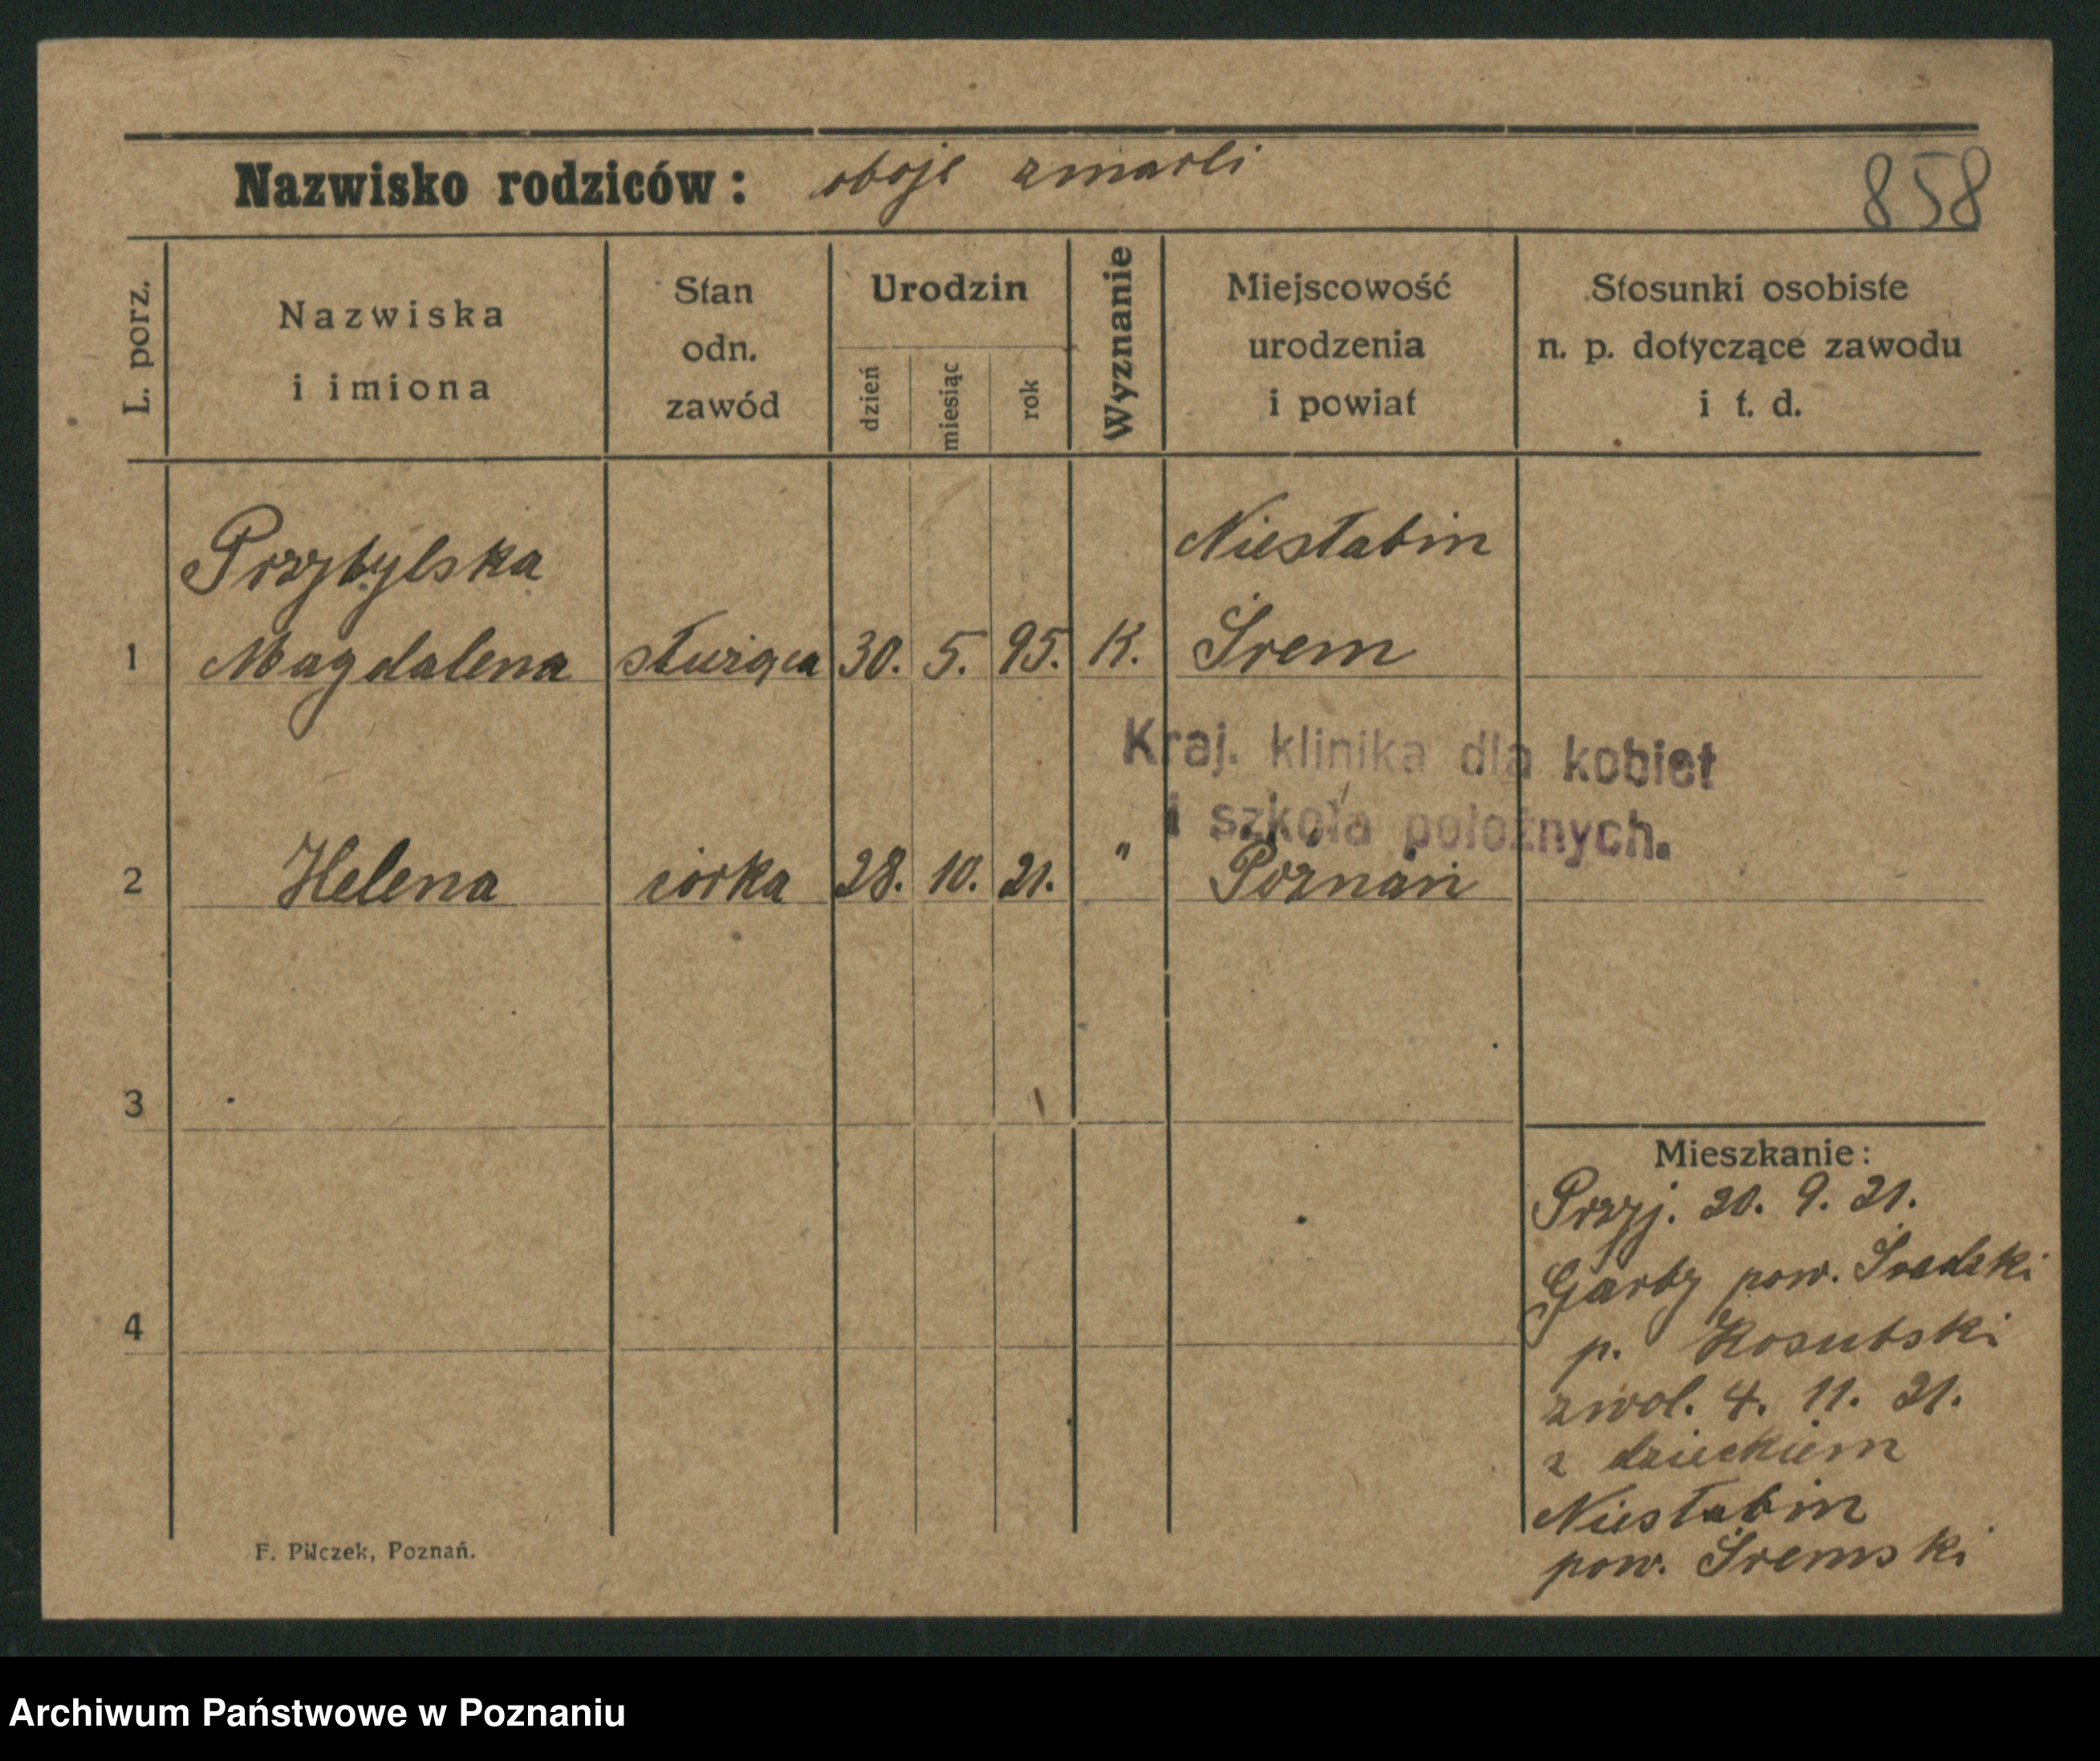 Nazwisko rodziców: oboje zmarli
858
L. porz.
Nazwiska
i imiona
Stan
odn.
zawód
Urodzin
dzień
miesiąc
rok
Wyznanie
Miejscowość
urodzenia
i powiat
Stosunki osobiste
n. p. dotyczące zawodu
i t. d.
Przybylska
Niesłabin
1 Magdalena służąca 30. 5. 95. K. Śrem
Kraj. klinika dla kobiet
i szkoła położnych.
2 Helena córka 28. 10. 21. " Poznań
3
4
Mieszkanie:
Przyj. 20. 9. 21.
Garby pow. Śradzki
p. Kosubski
zwol. 4. 11. 21.
z dzieckiem
Niesłabin
pow. Śremski
F. Pilczek, Poznań.
Archiwum Państwowe w Poznaniu